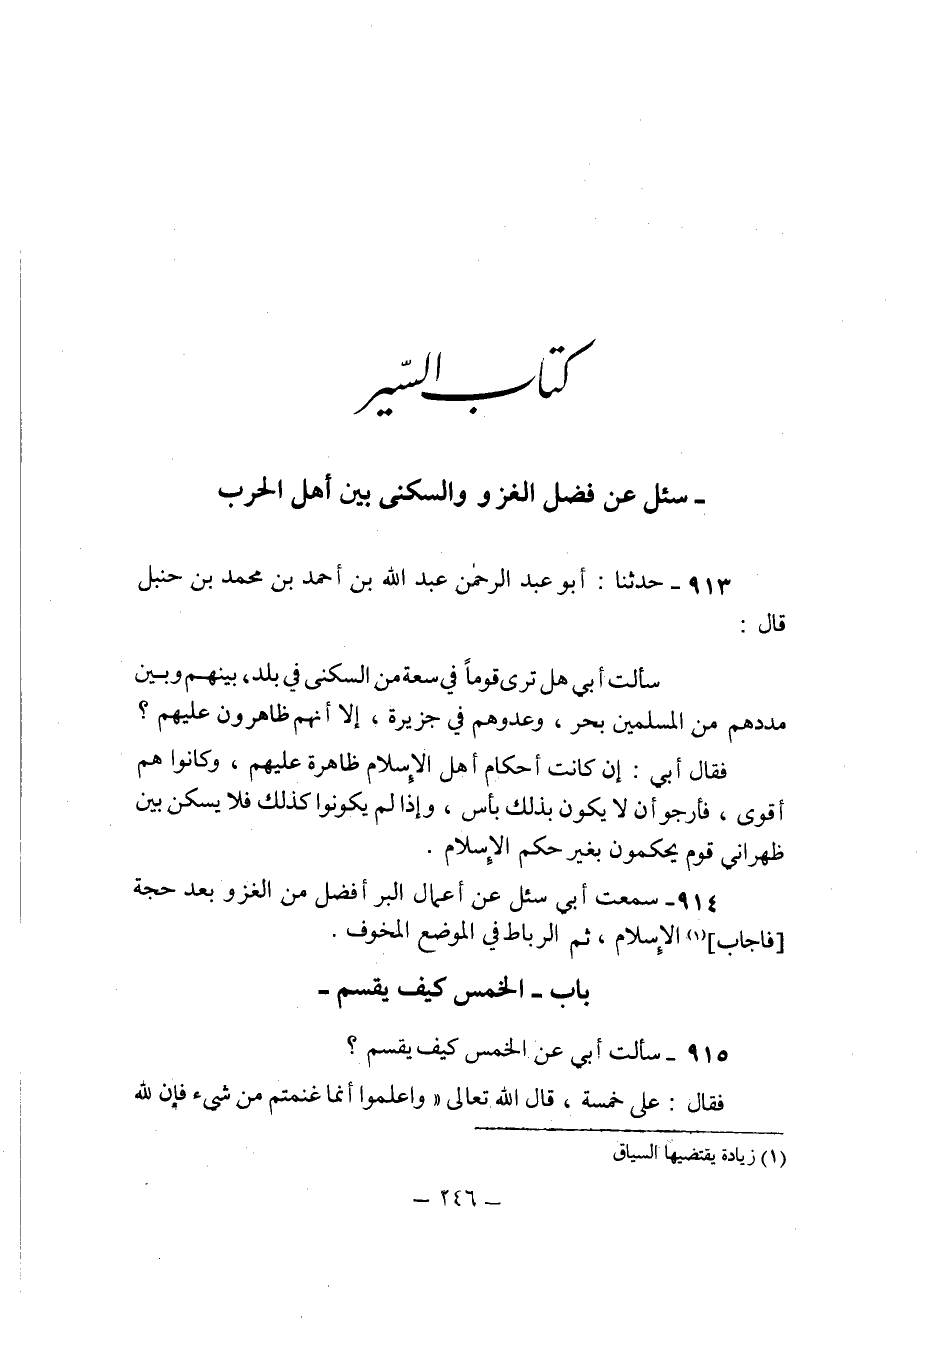 كتاب السّير
ـ سئل عن فضل الغزو والسكنى بين أهل الحرب
٩١٣ ـ حدثنا : أبو عبد الرحمٰن عبد الله بن أحمد بن محمد بن حنبل
قال :
سألت أبي هل ترى قوماً في سعة من السكنى في بلد، بينهم وبين
مددهم من المسلمين بحر ، وعدوهم في جزيرة ، إلا أنهم ظاهرون عليهم ؟
فقال أبي : إن كانت أحكام أهل الإسلام ظاهرة عليهم ، وكانوا هم
أقوى ، فأرجو أن لا يكون بذلك بأس ، وإذا لم يكونوا كذلك فلا يسكن بين
ظهراني قوم يحكمون بغير حكم الإسلام .
٩١٤ـ سمعت أبي سئل عن أعمال البر أفضل من الغزو بعد حجة
[فاجاب](١) الإسلام ، ثم الرباط في الموضع المخوف .
باب ـ الخمس كيف يقسم ـ
٩١٥ ـ سألت أبي عن الخمس كيف يقسم ؟
فقال : على خمسة ، قال الله تعالى « واعلموا أنما غنمتم من شيء فإن لله
(١) زيادة يقتضيها السياق
ـ ٢٤٦ ـ